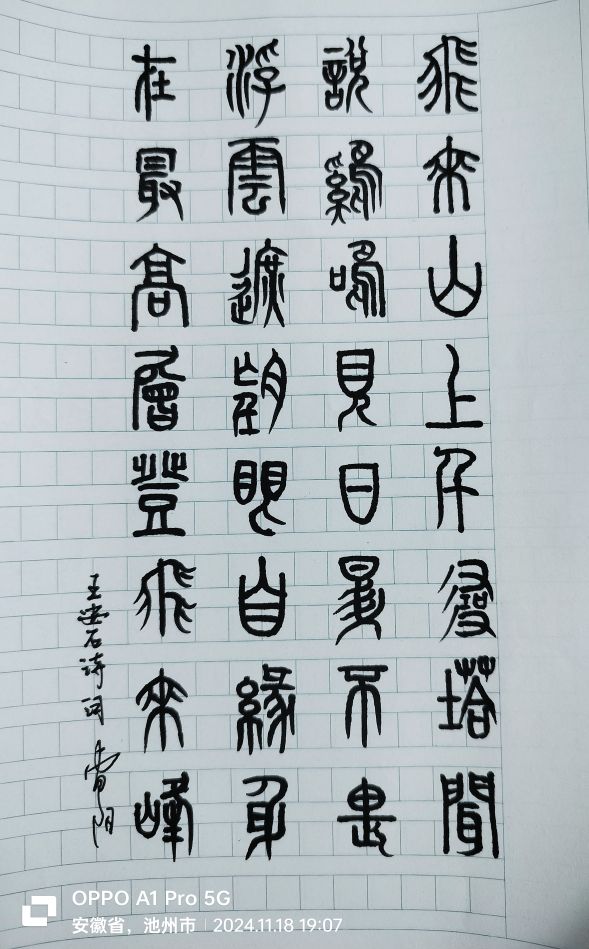 飛來山上千尋塔聞
說鷄鳴見日昇不畏
浮雲遮望眼自緣身
在最高層登飛來峰
王安石诗词 阳
OPPO A1 Pro 5G
安徽省，池州市 | 2024.11.18 19:07